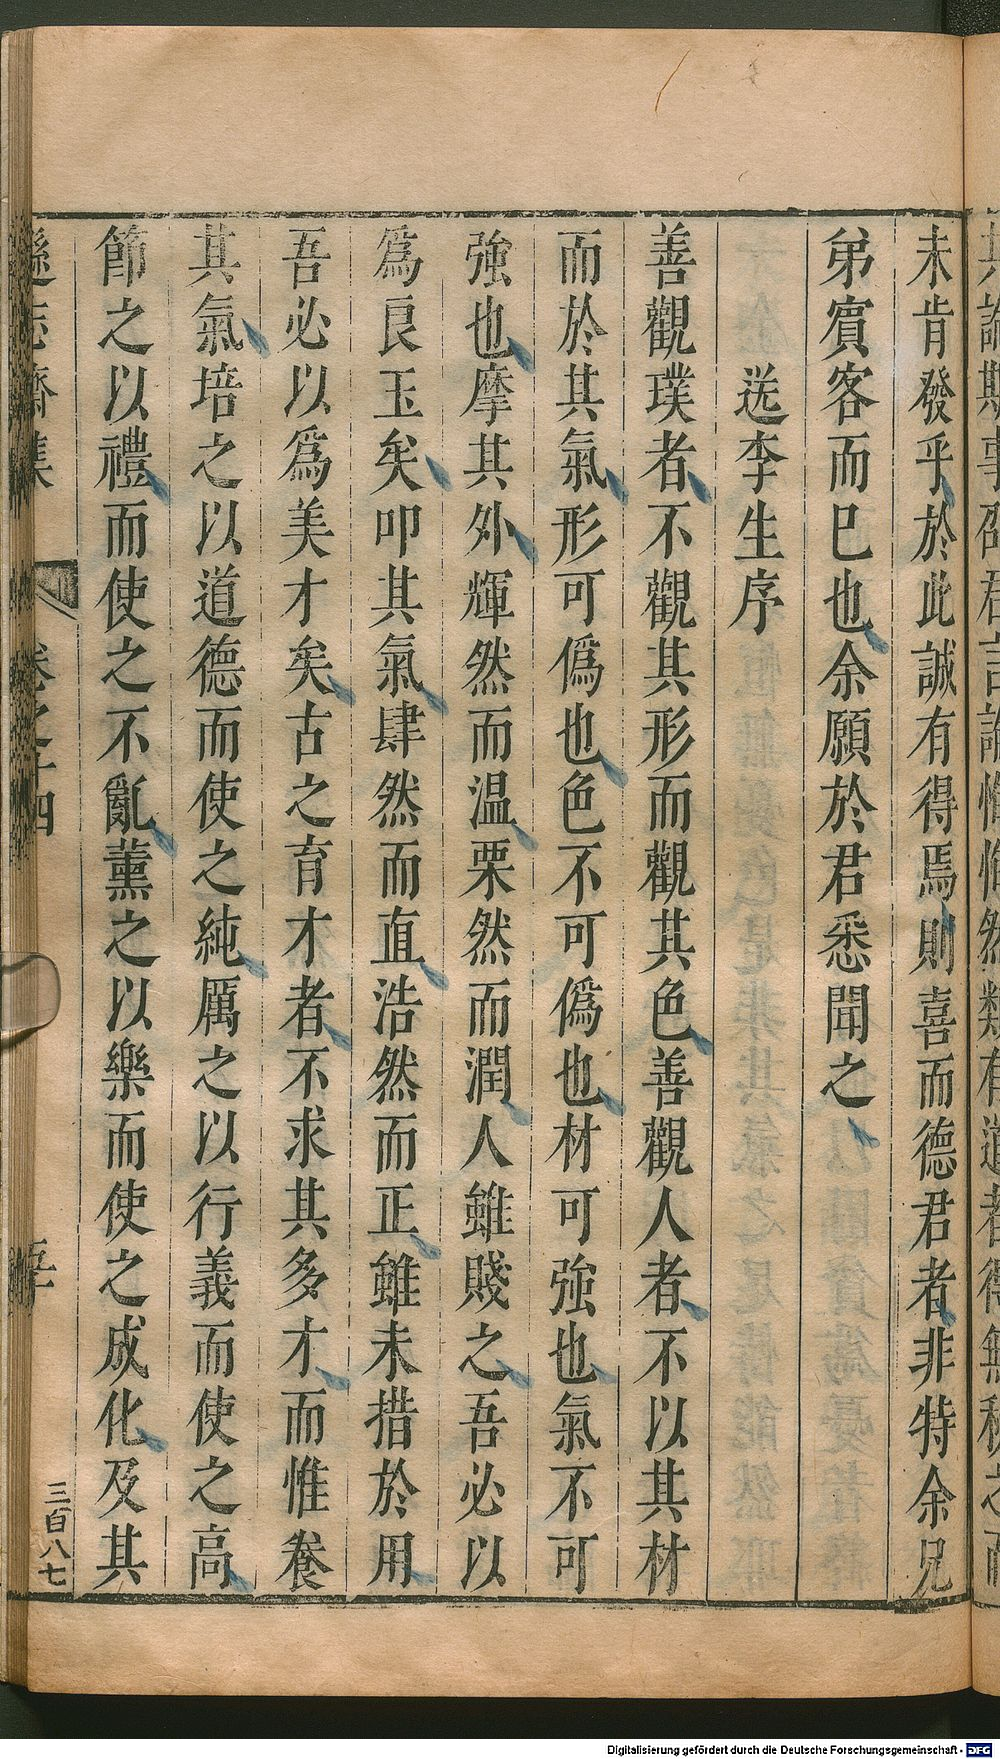 未肯發乎於此誠有得焉則喜而德君者非特余兄
弟賓客而巳也余願於君悉聞之
送李生序
善觀璞者不觀其形而觀其色善觀人者不以其材
而於其氣形可僞也色不可僞也材可強也氣不可
強也摩其外輝然而温栗然而潤人雖賤之吾必以
爲良玉矣叩其氣肆然而直浩然而正雖未措於用
吾必以爲美才矣古之育才者不求其多才而惟養
其氣培之以道德而使之純厲之以行義而使之高
節之以禮而使之不亂薰之以樂而使之成化及其
遜志齋集 卷之十四
三百八七
Digitalisierung gefördert durch die Deutsche Forschungsgemeinschaft - DFG